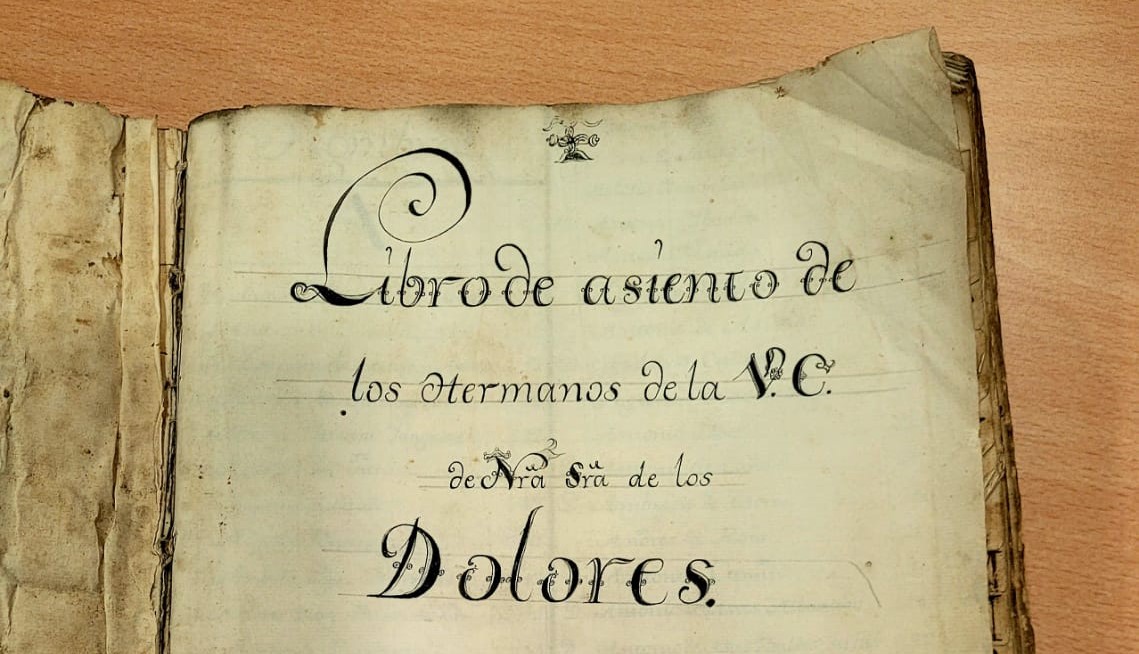 Libro de asiento de
los Hermanos de la V. C.
de Nrã Srã de los
Dolores.